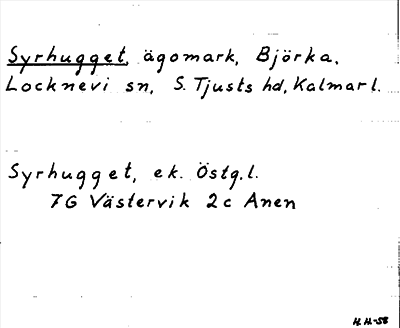 Syrhugget, ägomark, Björka,
Locknevi sn, S. Tjusts hd, Kalmar l.
Syrhugget, ek. Östg. l.
7G Västervik 2c Anen
H.H.-58